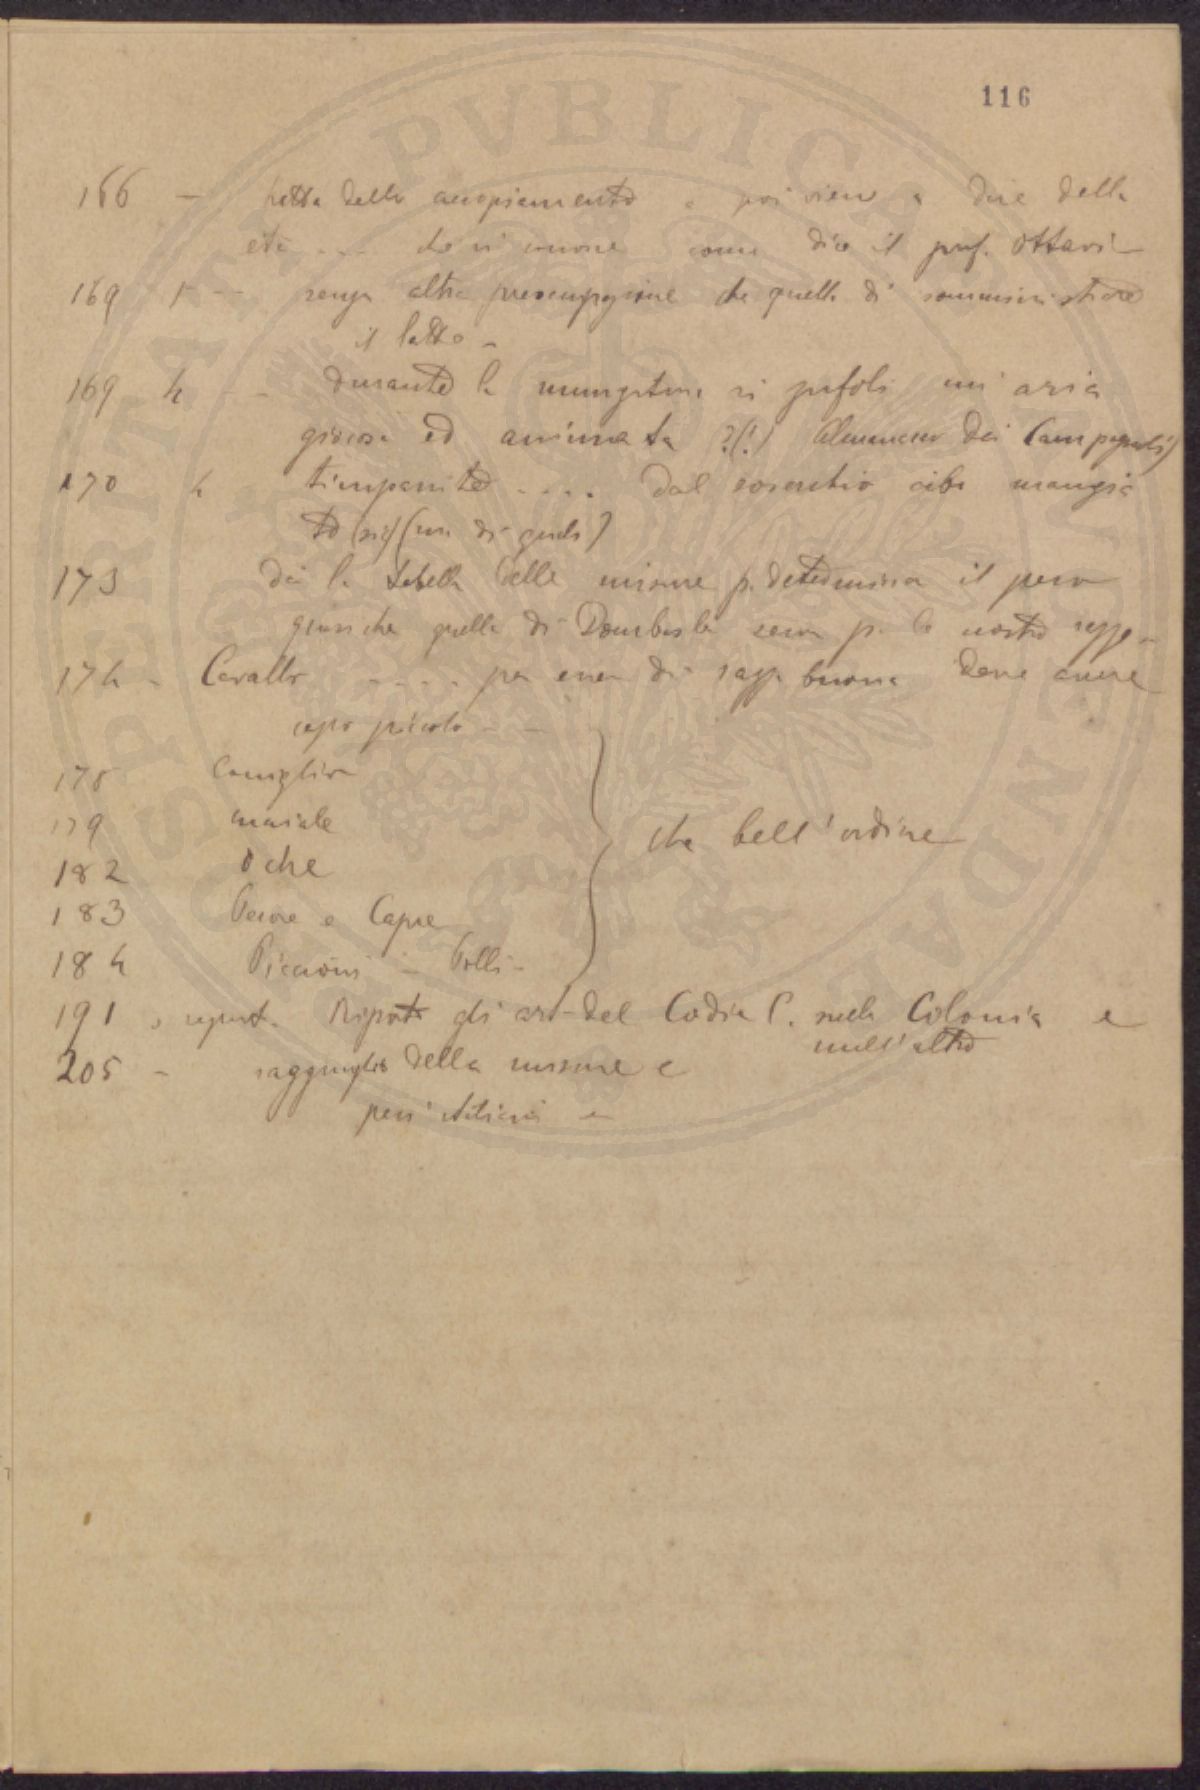 116
166 — tratta dello accoppiamento e poi viene a dire della
età ... che si conosce come dice il prof. Ottavi —
169 1 — senza altra preoccupazione che quella di somministrare
il latte —
169 4 — durante la mungitura si zufoli un' aria
giocosa ed animata ?(!) Almanacco dei Campagnoli)
170 4 timpanite .... dal soverchio cibo mangia
to (sic) (non di quello)
173 Dà la tabella delle misure p. determinar il peso
quasi che quella di Dombasle serva p. le nostre razze —
174 — Cavallo .... per esser di razza buona deve avere
capo piccolo — —
178 Coniglio
179 maiale
182 Oche
183 Pecore e Capre
184 Piccioni — Polli —
che bell'ordine
191 , Riporta gli art. del Codice C. sulla Colonia e
sull'altro
205 — ragguaglio della misure e
pesi
PVBLICA